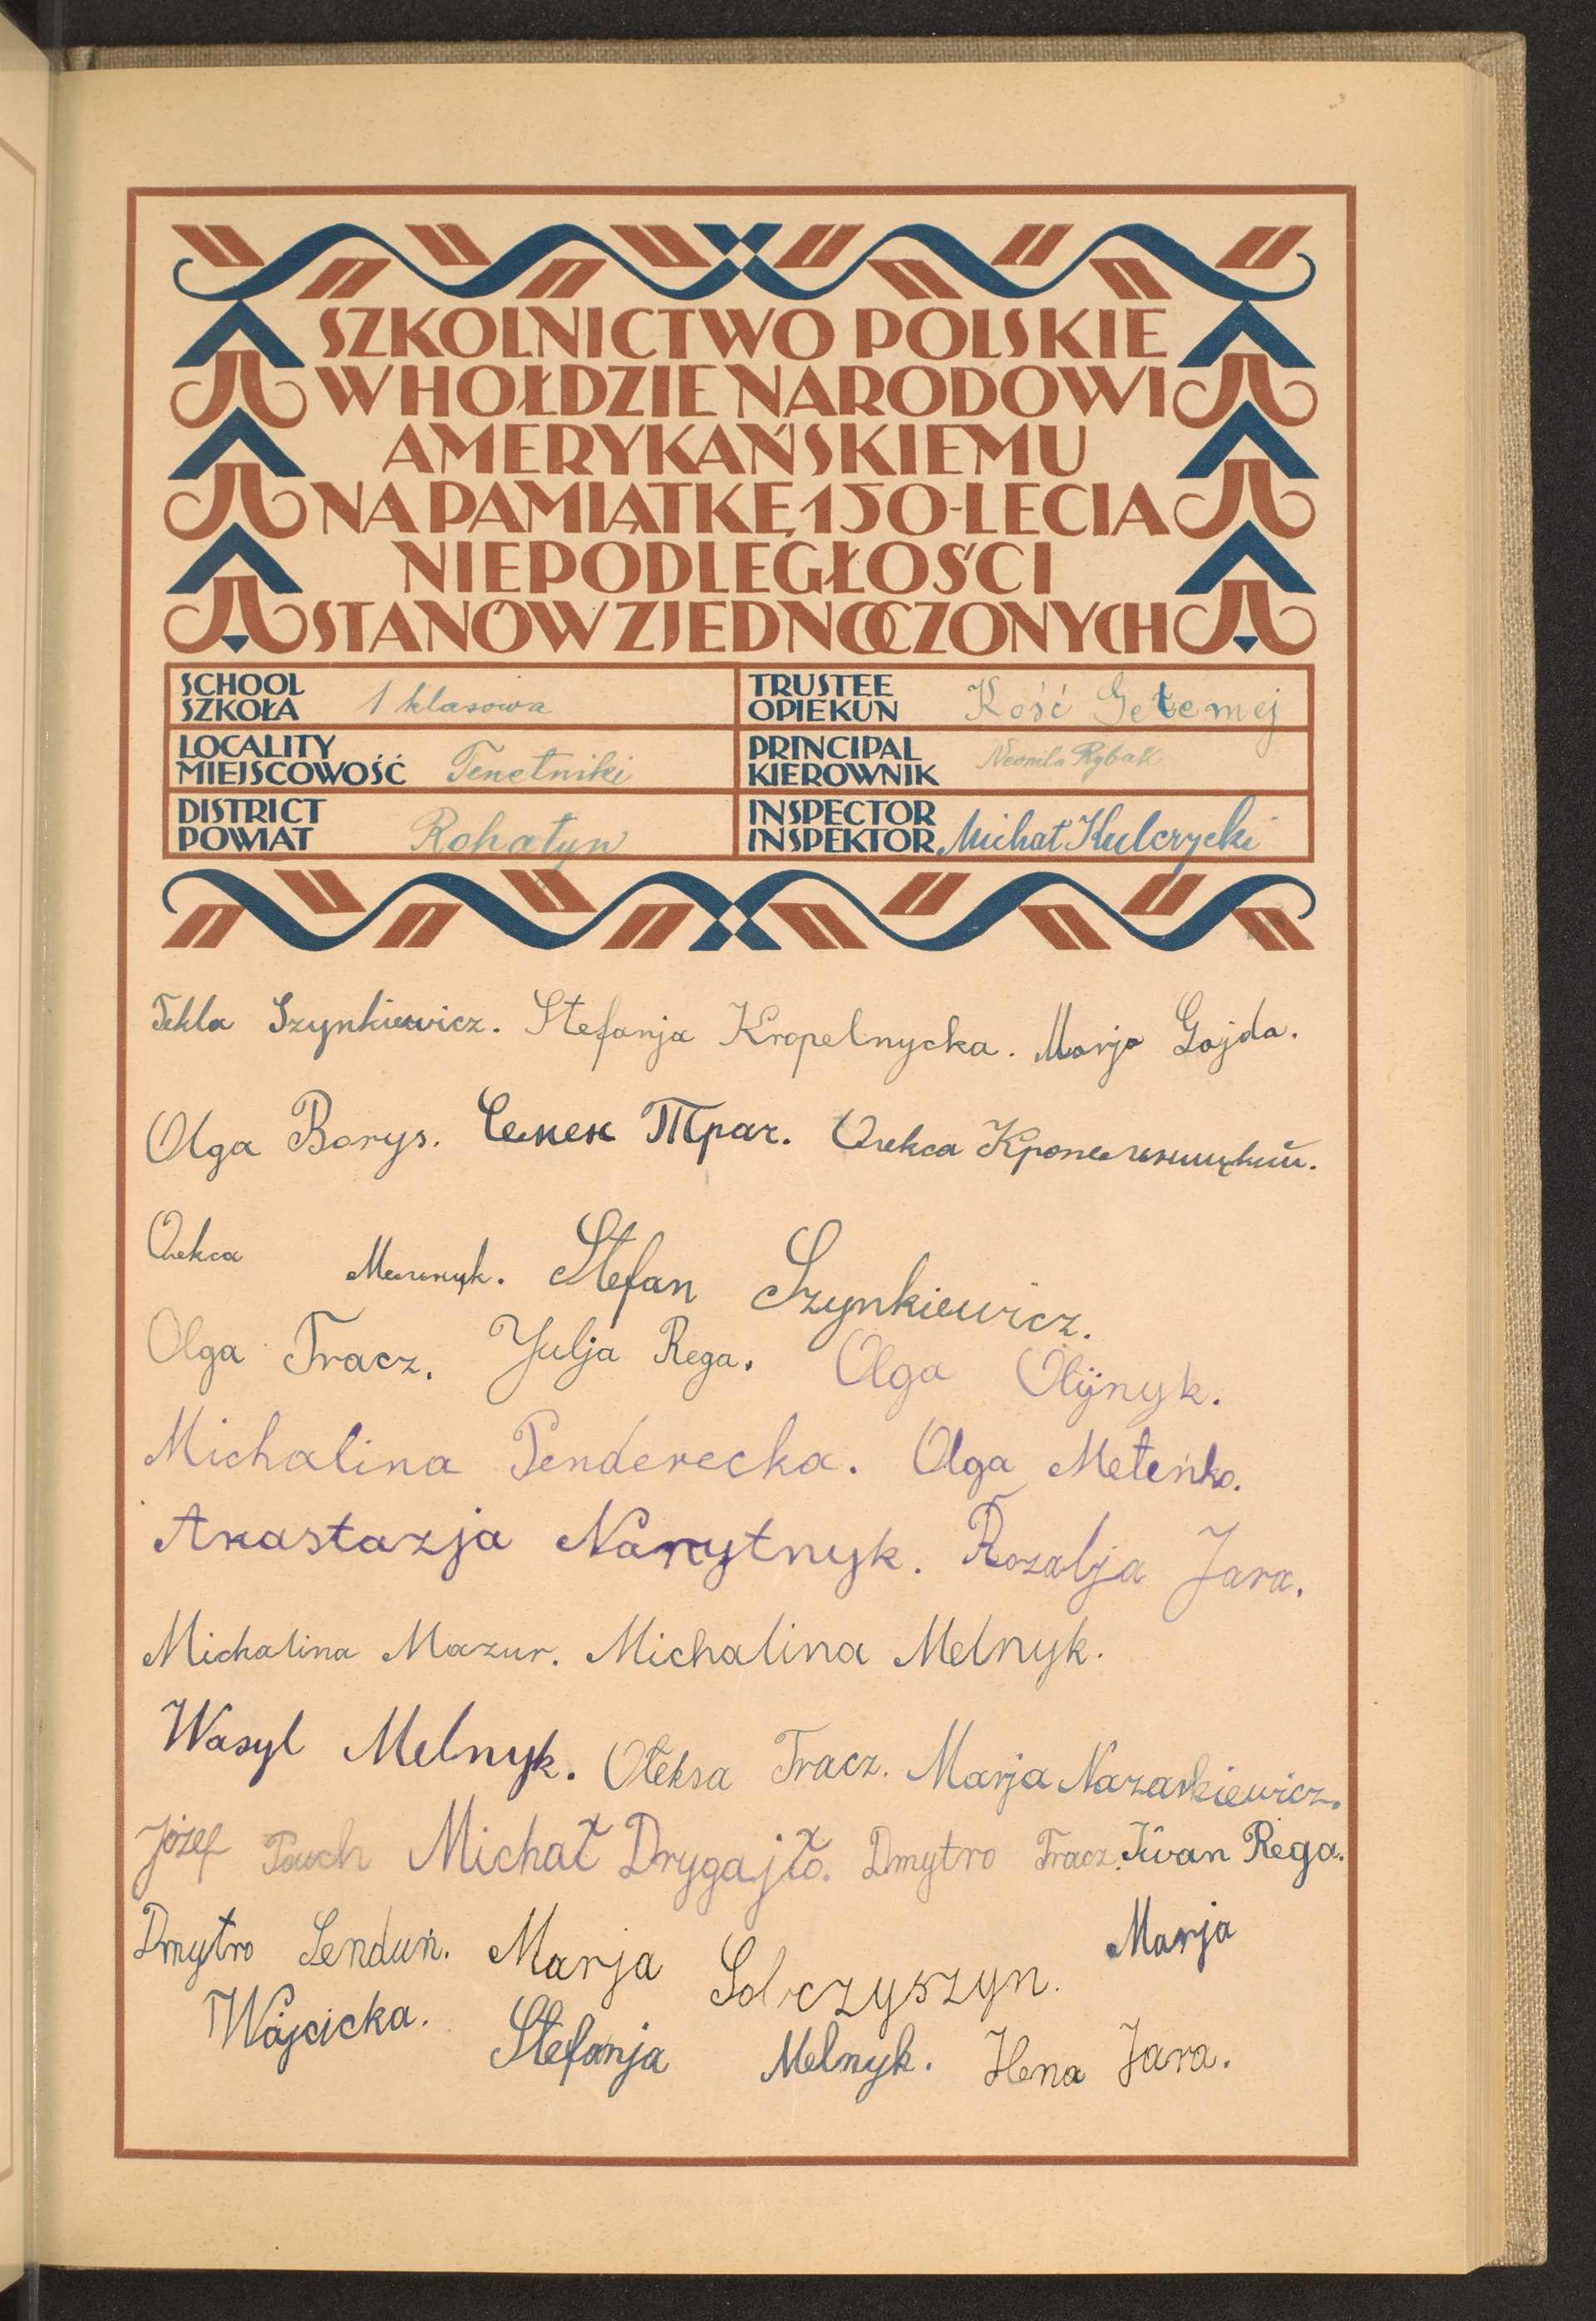 SZKOLNICTWO POLSKIE
W HOŁDZIE NARODOWI
AMERYKAŃSKIEMU
NA PAMIĄTKĘ 150-LECIA
NIEPODLEGŁOŚCI
STANÓW ZJEDNOCZONYCH
SCHOOL SZKOŁA 1 klasowa
TRUSTEE OPIEKUN Kość
LOCALITY MIEJSCOWOŚĆ Tenetniki
PRINCIPAL KIEROWNIK Neonila Rybak
DISTRICT POWIAT Rohatyn
INSPECTOR INSPEKTOR Michał Kulczycki
Tekla Szynkiewicz. Stefanja Kropelnycka. Marja Gojda.
Olga Borys. Семен Трач. Олекса Кропельницкий.
Олекса Мельник. Stefan Szynkiewicz.
Olga Tracz. Julja Rega. Olga Olijnyk.
Michalina Penderecka. Olga Metenko.
Anastazja Narytnyk. Rozalja Jara.
Michalina Mazur. Michalina Melnyk.
Wasyl Melnyk. Ołeksa Tracz. Marja Nazarkiewicz.
Józef Michał Drygajło. Dmytro Tracz. Iwan Rega.
Dmytro Senduń. Marja Solczyszyn. Marja
Wójcicka. Stefanja Melnyk. Ilena Jara.